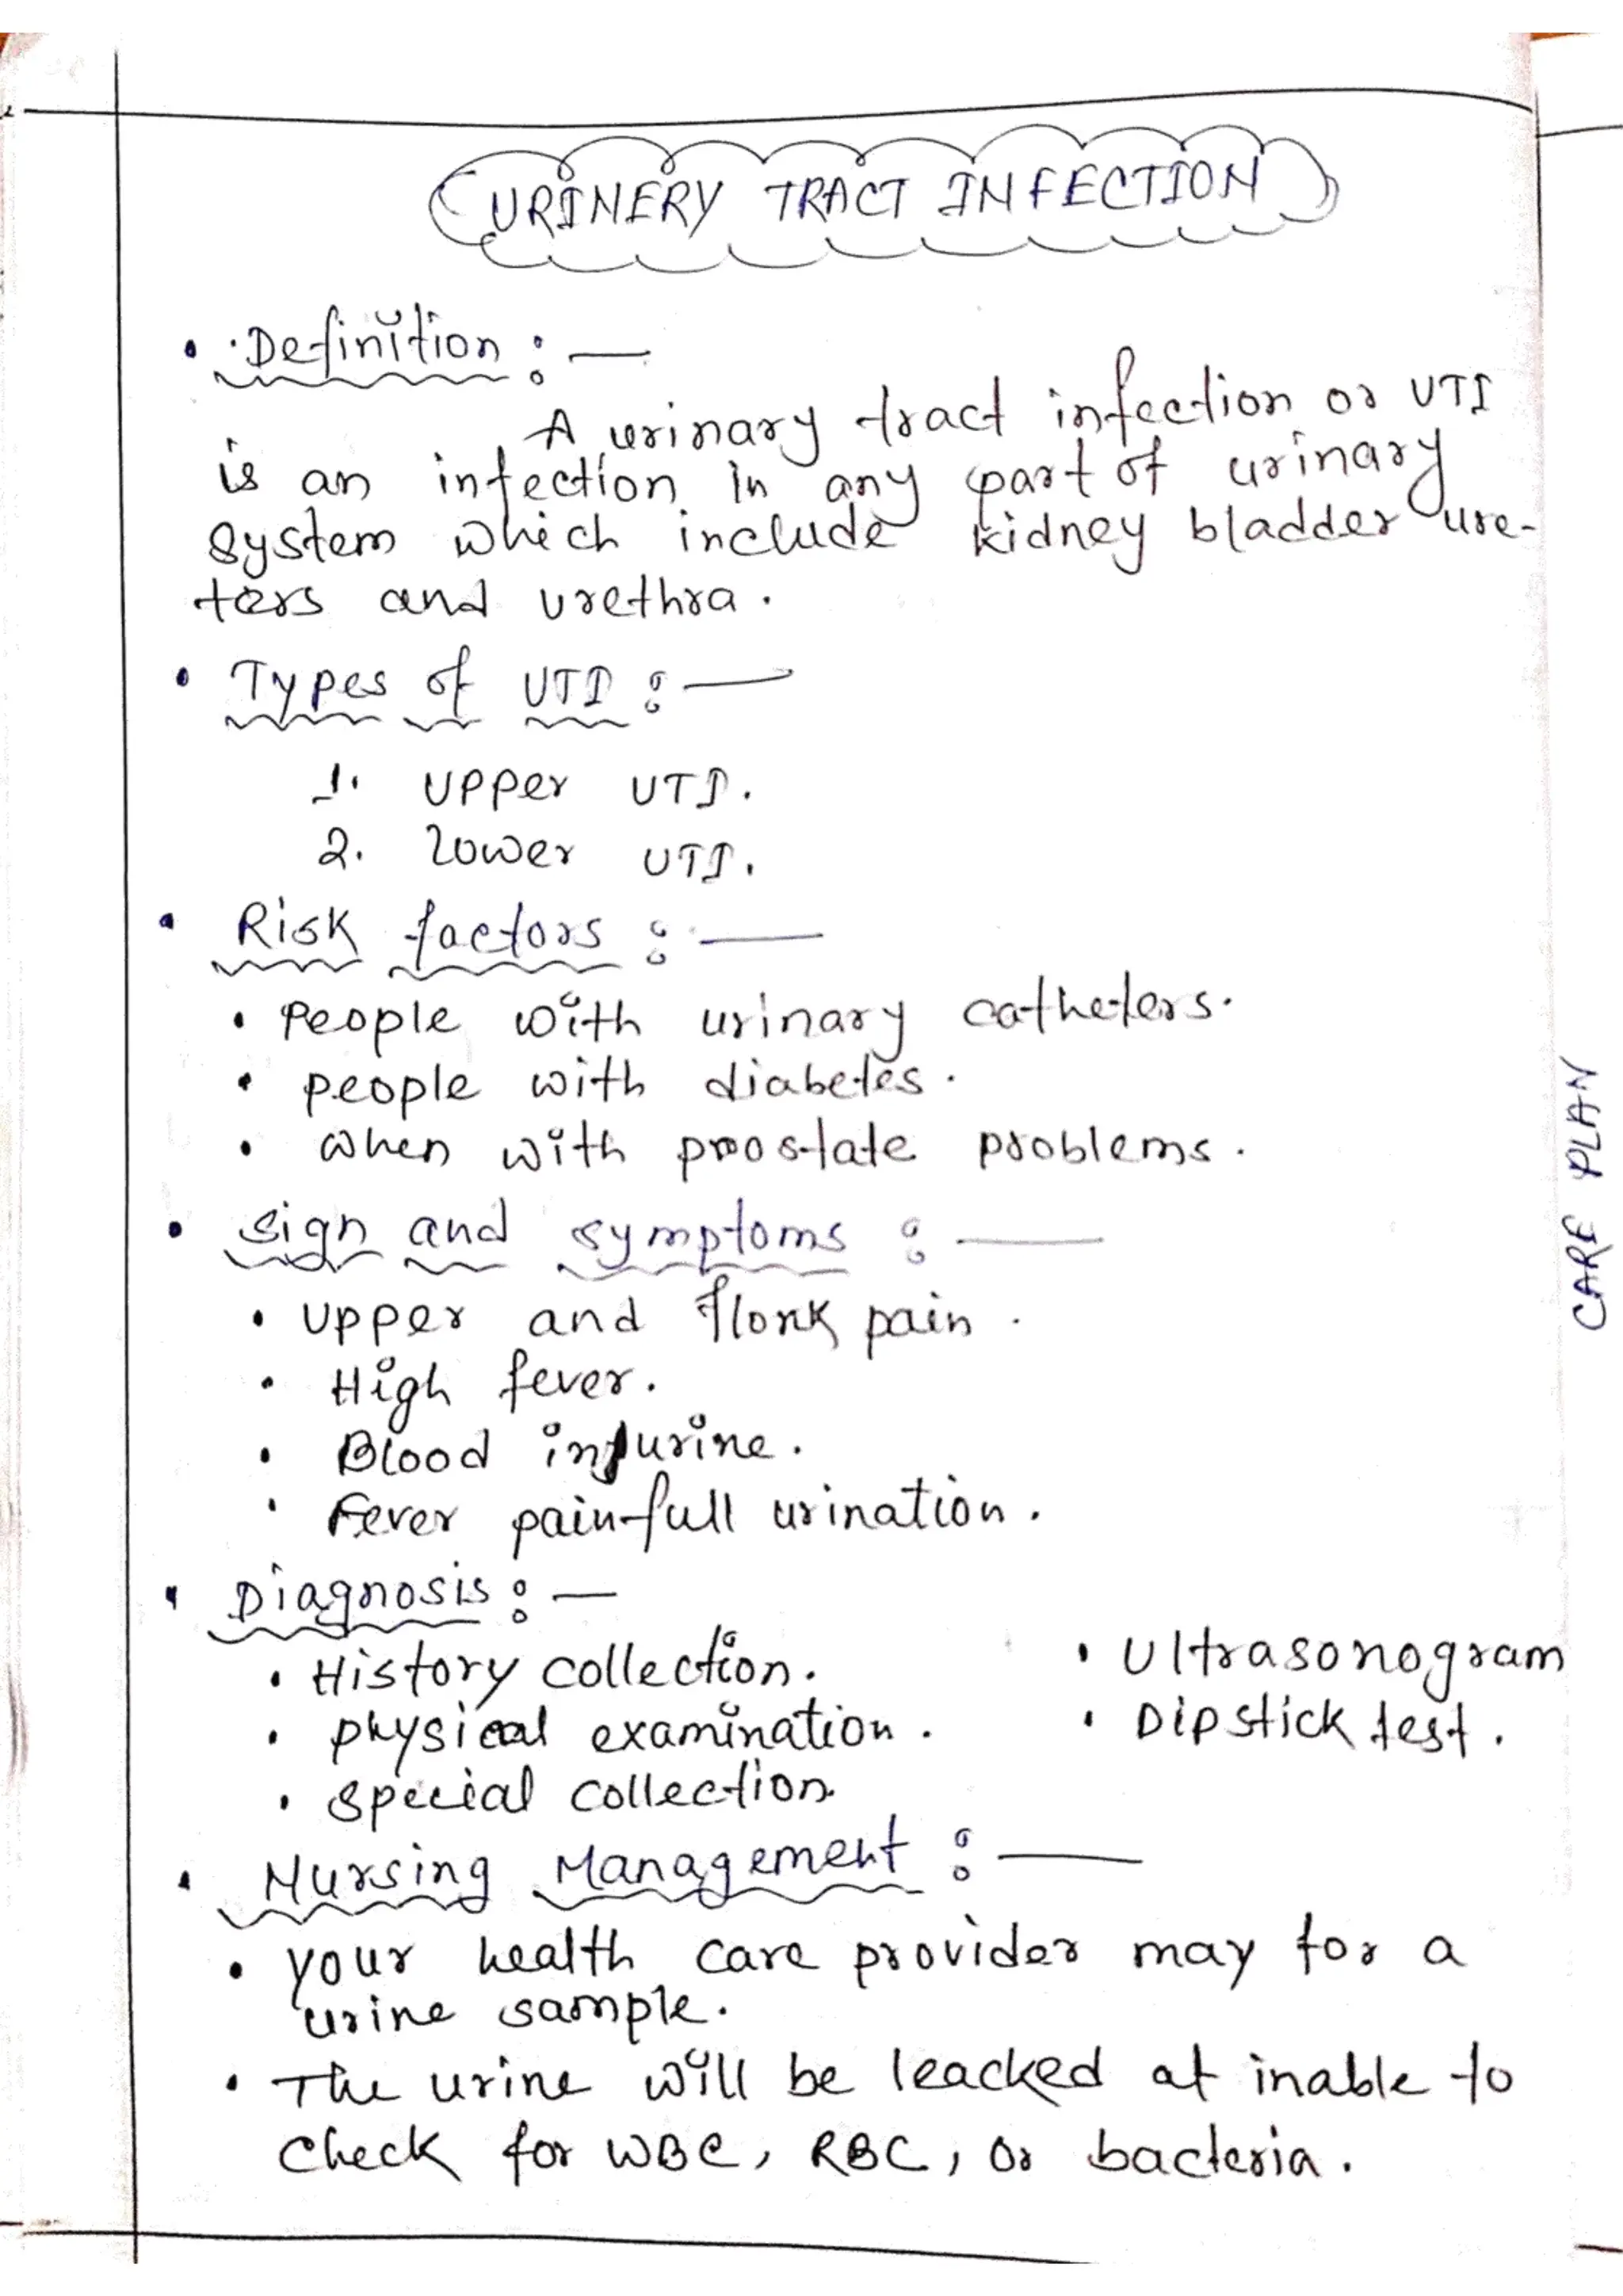 URINERY TRACT INFECTION
• Definition :—
A urinary tract infection or UTI
is an infection in any part of urinary
system which include kidney bladder ure-
ters and urethra.
• Types of UTI :—
1. Upper UTI.
2. Lower UTI.
• Risk factors :—
• People with urinary catheters.
• people with diabetes.
• when with prostate problems.
• Sign and symptoms :—
• Upper and flonk pain.
• High fever.
• Blood in urine.
• Fever pain-full urination.
• Diagnosis :—
• History collection.
• physical examination.
• special collection
• Ultrasonogram
• Dipstick test.
• Nursing Management :—
• your health care provider may for a
urine sample.
• The urine will be leacked at inable to
check for WBC, RBC, or bacteria.
CARE PLAN